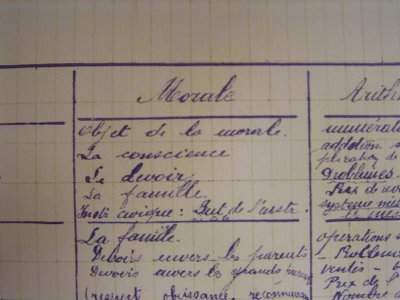 Morale
Objet de la morale.
La conscience
Le devoir
La famille.
Instr civique: But de l'instr.
La famille.
Devoirs envers les parents
Devoirs envers les grands parents
(respect obéissance, reconnaiss
Arith
numérati
addition s
plication de
Problèmes.
système mé
opérations s
- Problèm
Prix de
Nombre d